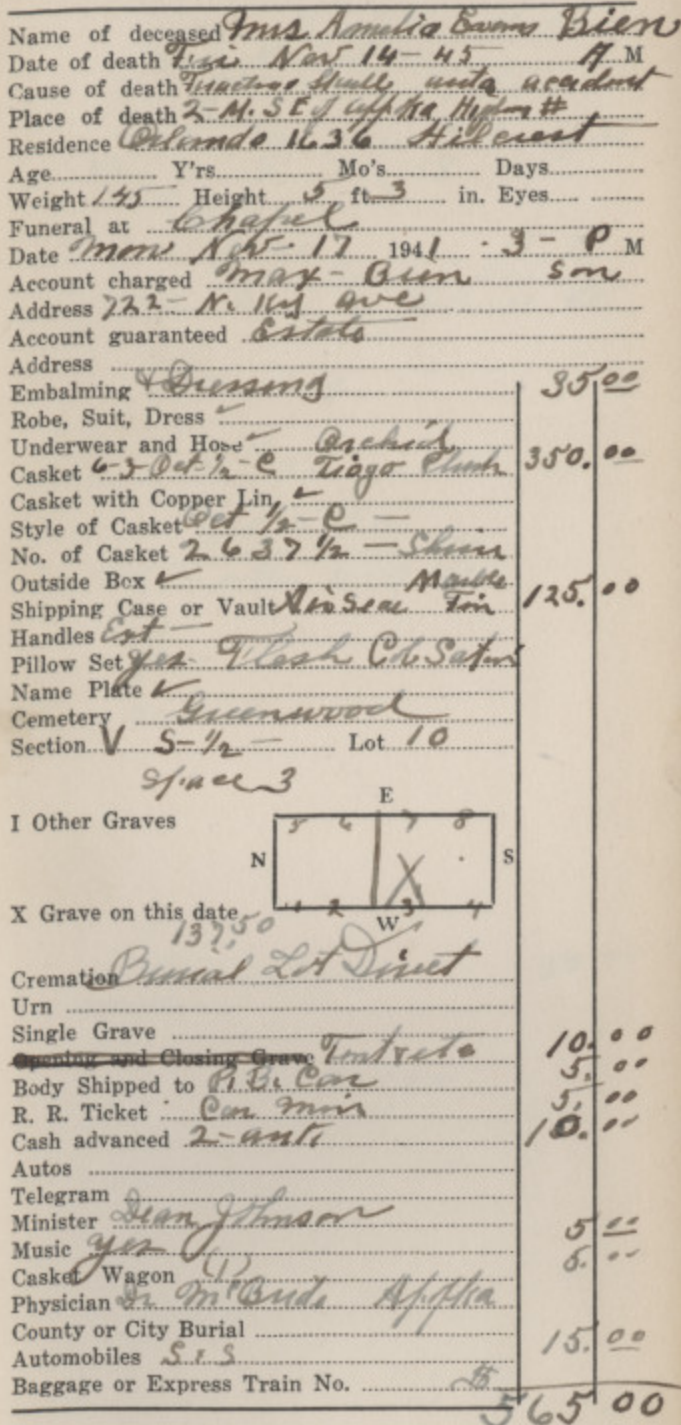 Name of deceased Mrs Amelia Evans Bien
Date of death Fri Nov 14-45 A M
Cause of death Fracture Skull auto accident
Place of death 2-M. S E of appka
Residence Orlando 1636 Hilcrest
Age Y'rs Mo's Days
Weight 145 Height 5 ft 3 in. Eyes
Funeral at Chapel
Date Mon Nov. 17 1941 3- P M
Account charged Max- Bien Son
Address 722- N. ave
Account guaranteed Estate
Address
Embalming & Dressing 35 00
Robe, Suit, Dress ✓
Underwear and Hose ✓ Orchid
Casket 6-3 Oct-1/2-C Plush 350. 00
Casket with Copper Lin. ✓
Style of Casket Oct 1/2-C-
No. of Casket 2637 1/2 -
Outside Box ✓ Marble
Shipping Case or Vault Air Seal Fin 125. 00
Handles Ext
Pillow Set yes
Name Plate ✓
Cemetery Greenwood
Section V S-1/2- Lot 10
Space 3
E
I Other Graves
5 6 7 8
N S
X
X Grave on this date
1 2 3 4
W
137.50
Cremation Burial Lot Direct
Urn
Single Grave 10. 00
Opening and Closing Grave Tent & etc 5. 00
Body Shipped to P. B. Car 5. 00
R. R. Ticket Car Min 10. 00
Cash advanced 2-aut.
Autos
Telegram
Minister Dean Johnson 5 00
Music yes 5. 00
Casket Wagon (1)
Physician Dr McBride Appka
County or City Burial
Automobiles S & S 15. 00
Baggage or Express Train No. $
565 00